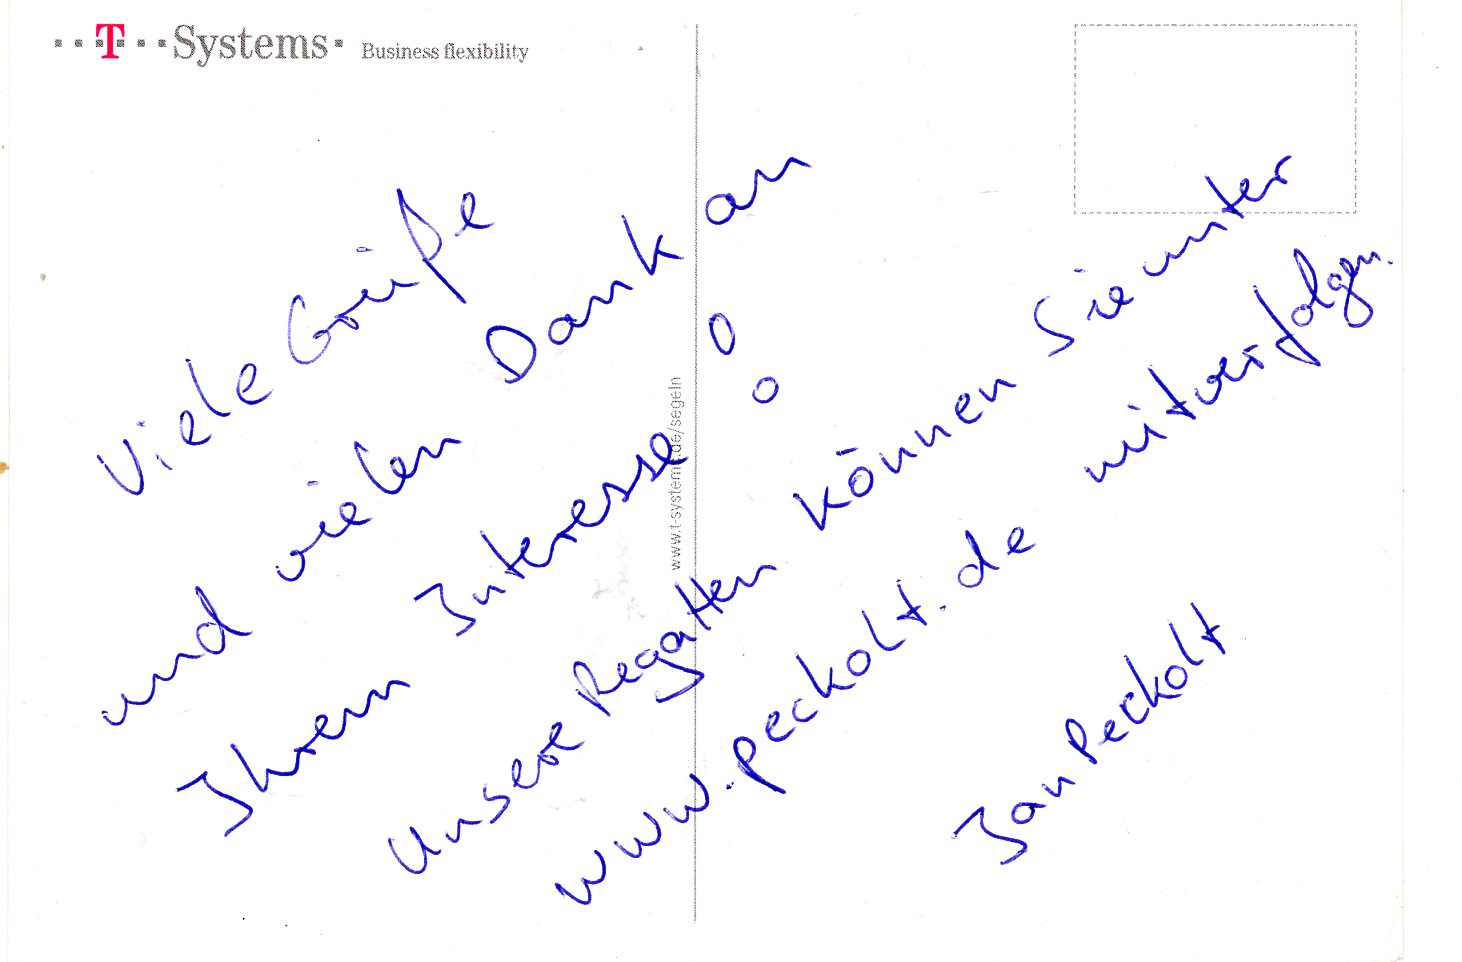 ··T··Systems· Business flexibility
Viele Grüße
und vielen Dank an
Ihrem Interesse !
Unsere Regatten können Sie unter
www.peckolt.de mitverfolgen.
Jan Peckolt
www.t-systems.de/segeln